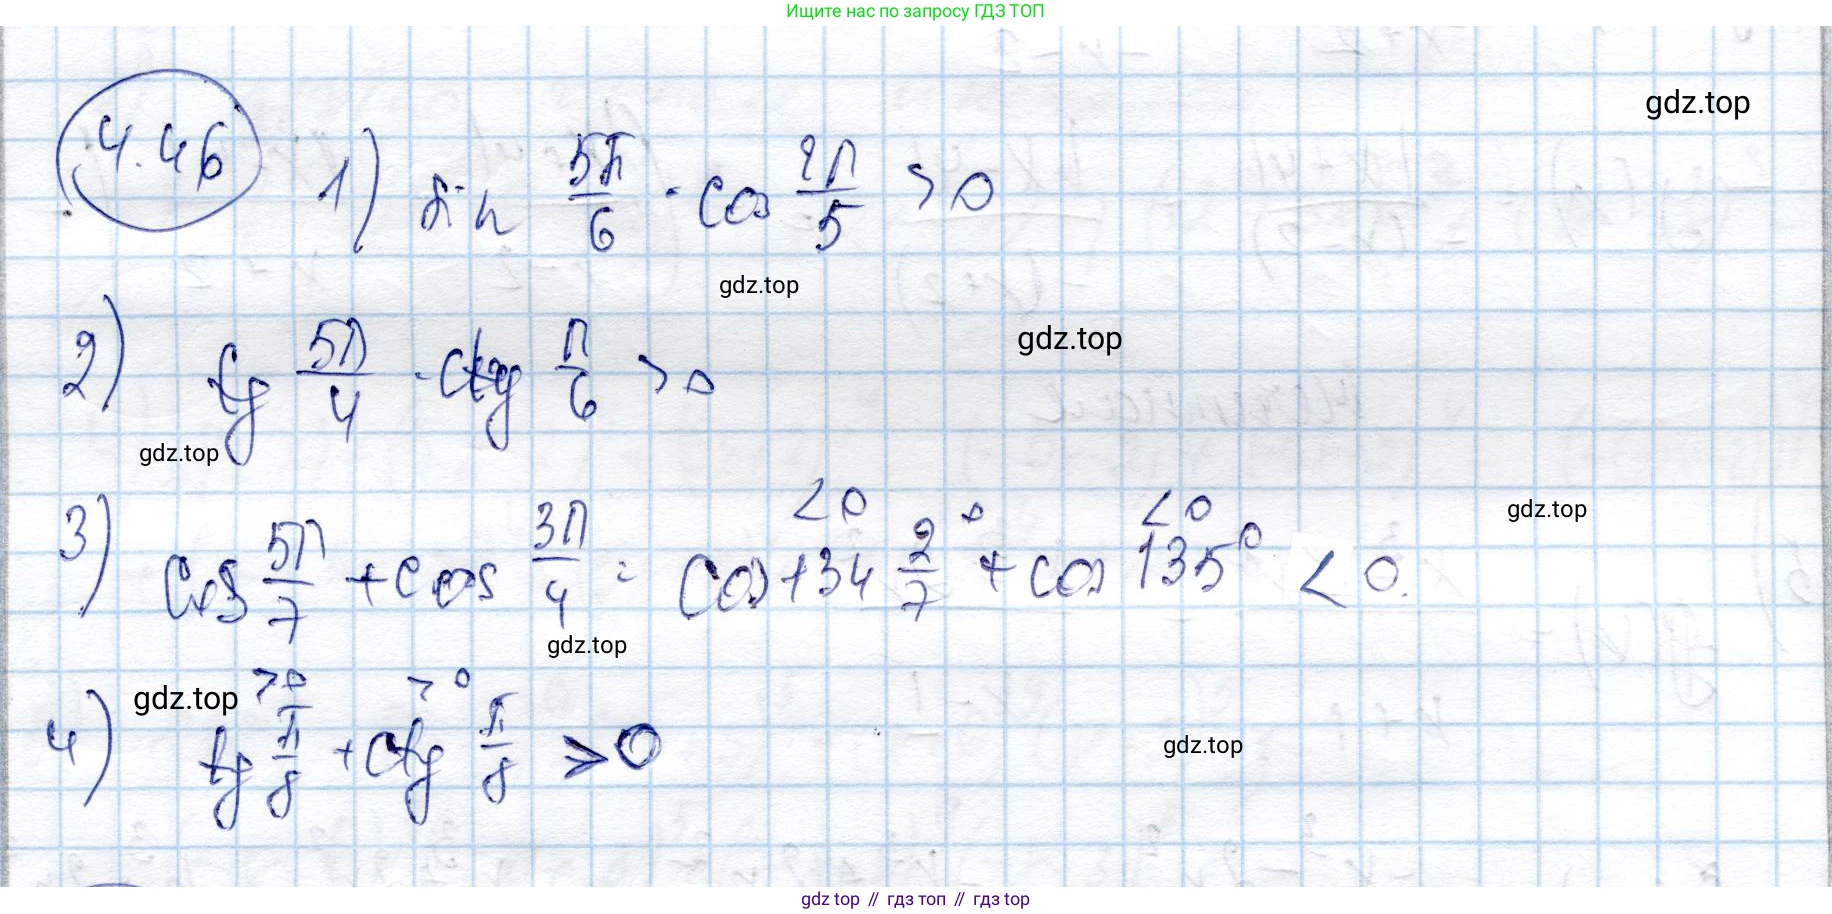 Ищите нас по запросу ГДЗ ТОП
gdz.top
4.46 1) sin 5π/6 · cos 2π/5 > 0
gdz.top
2) tg 5π/4 · ctg π/6 > 0
gdz.top
gdz.top
<0 <0
3) cos 5π/7 + cos 3π/4 = cos 134 2/7° + cos 135° < 0.
gdz.top
gdz.top
gdz.top >0 >0
4) tg π/8 + ctg π/8 > 0
gdz.top
gdz.top // гдз топ // гдз top